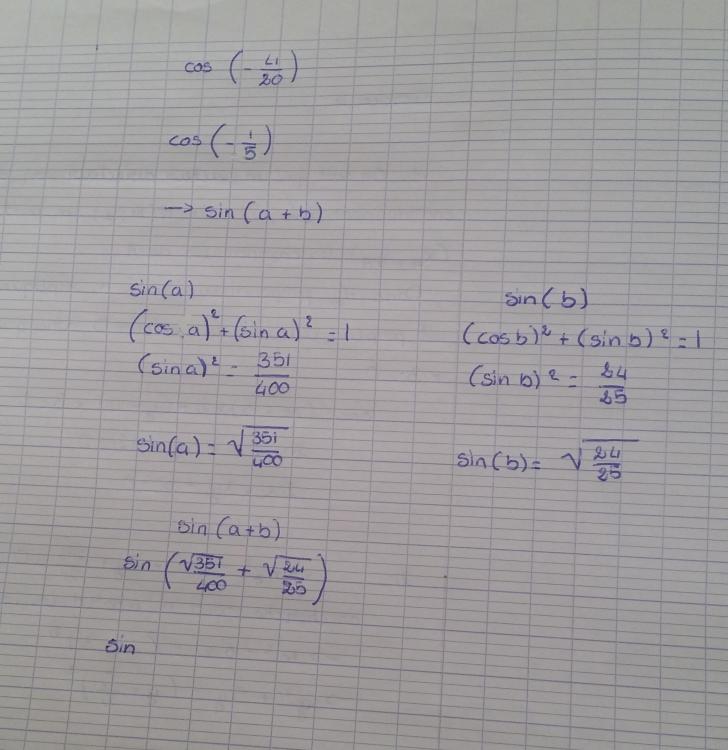 cos (- /20)
cos (-1/5)
→ sin (a + b)
sin(a)
(cos a)² + (sin a)² = 1
(sin a)² = 351/400
sin(a) = √(351/400)
sin(b)
(cos b)² + (sin b)² = 1
(sin b)² = 24/25
sin(b) = √(24/25)
sin (a+b)
sin (√351/400 + √24/25)
sin